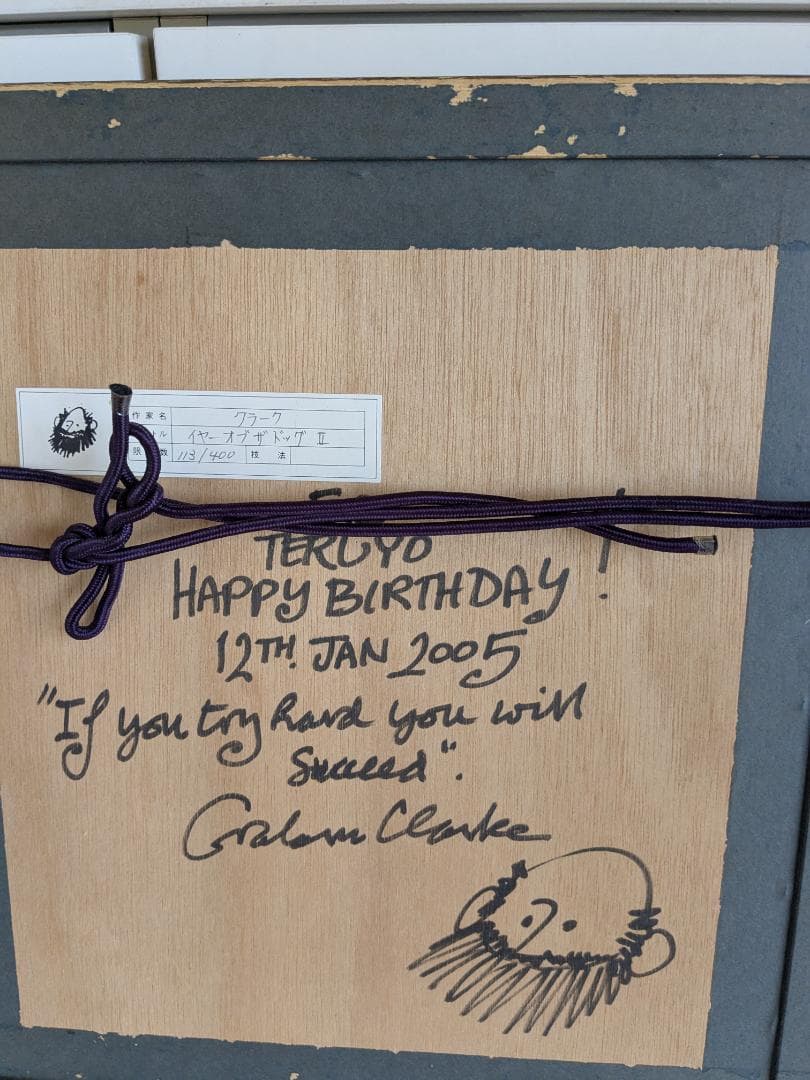 作家名 クラーク
トル イヤーオブザドッグ II
限 数 113/400 技法
TERUYO
HAPPY BIRTHDAY !
12TH JAN 2005
"If you try hard you will
succeed".
Graham Clarke